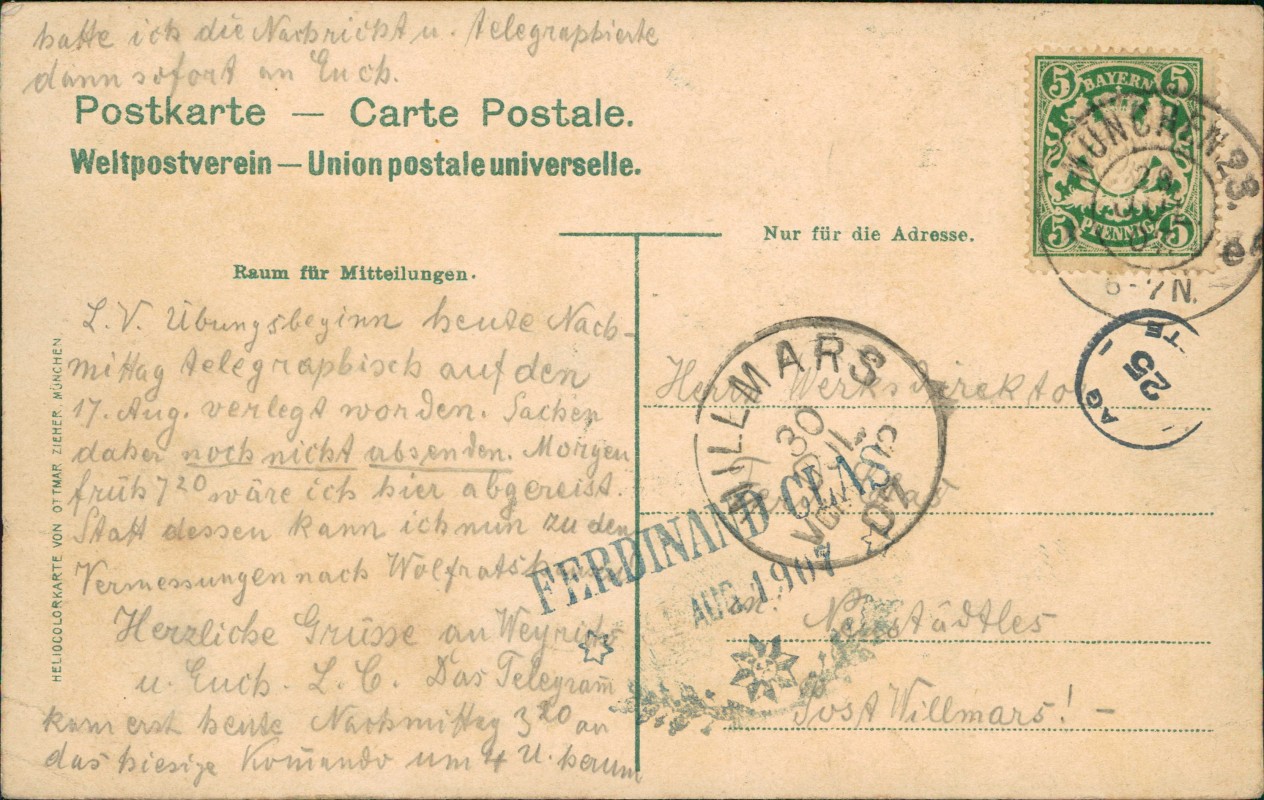 hatte ich die Nachricht u. telegraphierte
dann sofort an Euch.
Postkarte — Carte Postale.
Weltpostverein — Union postale universelle.
Nur für die Adresse.
Raum für Mitteilungen.
L. V. Übungsbeginn heute Nach-
mittag telegraphisch auf den
17. Aug. verlegt worden. Sachen
daher noch nicht absenden. Morgen
früh 7 20 wäre ich hier abgereist.
Statt dessen kann ich nun zu den
Vermessungen nach
Herzliche Grüsse an
u. Euch. L. C. Das Telegram̄
kam erst heute Nachmittag 3 20 an
das hiesige Kom̄ando um 4 U. herum
HELIOCOLORKARTE VON OTTMAR ZIEHER, MÜNCHEN
BAYERN
5 5
5 5
PFENNIG
MÜNCHEN 23.
6-7 N.
25
WILLMARS
30
JUL
VORM
07
FERDINAND CLAS
AUG. 1907
Herrn Werksdirektor
in: Neustädtles
Post Willmars! –